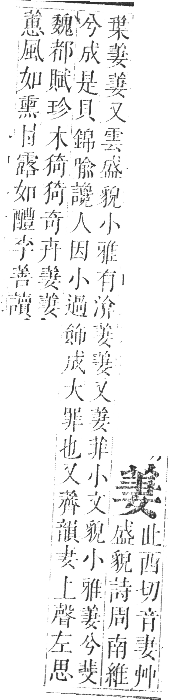 萋
此西切音妻艸
盛貌詩周南維
葉萋萋又雲盛貌小雅有渰萋萋又萋菲小文貌小雅萋兮斐
兮成是貝錦喻讒人因小過飾成大罪也又薺韻妻上聲左思
魏都賦珍木猗猗奇卉萋萋
蕙風如熏甘露如醴李善讀